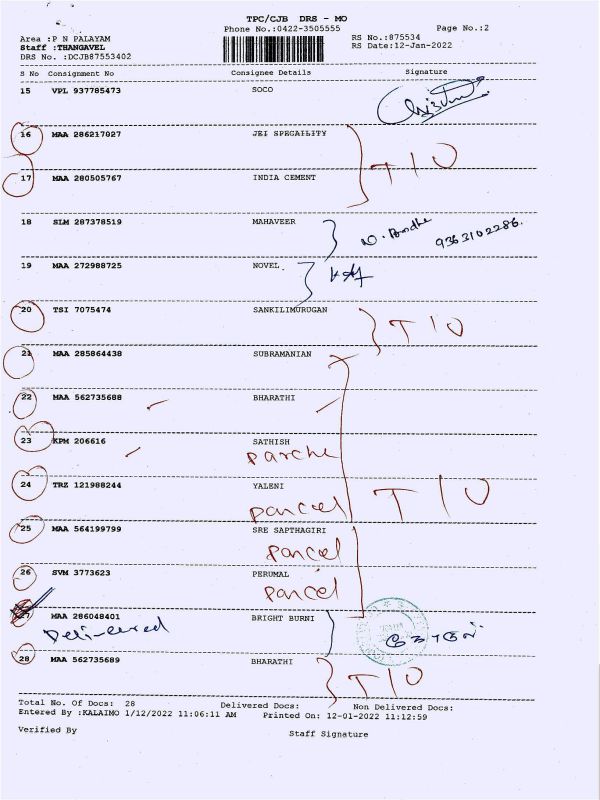 TPC/CJB DRS - MO
Phone No.:0422-3505555 Page No.:2
Area :P N PALAYAM RS No.:875534
Staff :THANGAVEL RS Date:12-Jan-2022
DRS No. :DCJB87553402
S No Consignment No Consignee Details Signature
15 VPL 937785473 SOCO
16 MAA 286217027 JEI SPECAILITY
T I O
17 MAA 280505767 INDIA CEMENT
18 SLM 287378519 MAHAVEER
9363102286.
19 MAA 272988725 NOVEL.
20 TSI 7075474 SANKILIMURUGAN
T I O
21 MAA 285864438 SUBRAMANIAN
22 MAA 562735688 BHARATHI
23 KPM 206616 SATHISH
24 TRZ 121988244 YALENI T I O
parcel
25 MAA 564199799 SRE SAPTHAGIRI
parcel
26 SVM 3773623 PERUMAL
parcel
27 MAA 286048401 BRIGHT BURNI
Delivered
28 MAA 562735689 BHARATHI
T I O
Total No. Of Docs: 28 Delivered Docs: Non Delivered Docs:
Entered By :KALAIMO 1/12/2022 11:06:11 AM Printed On: 12-01-2022 11:12:59
Verified By Staff Signature